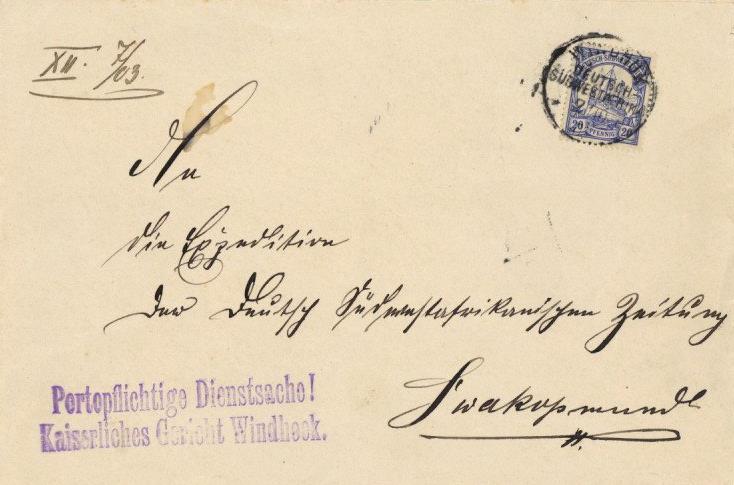 XII. 7/03.
WINDHUK
DEUTSCH-
SÜDWESTAFRIKA
20 PFENNIG 20
An
die Expedition
der Deutsch Südwestafrikanischen Zeitung
Swakopmund
Portopflichtige Dienstsache!
Kaiserliches Gericht Windhoek.